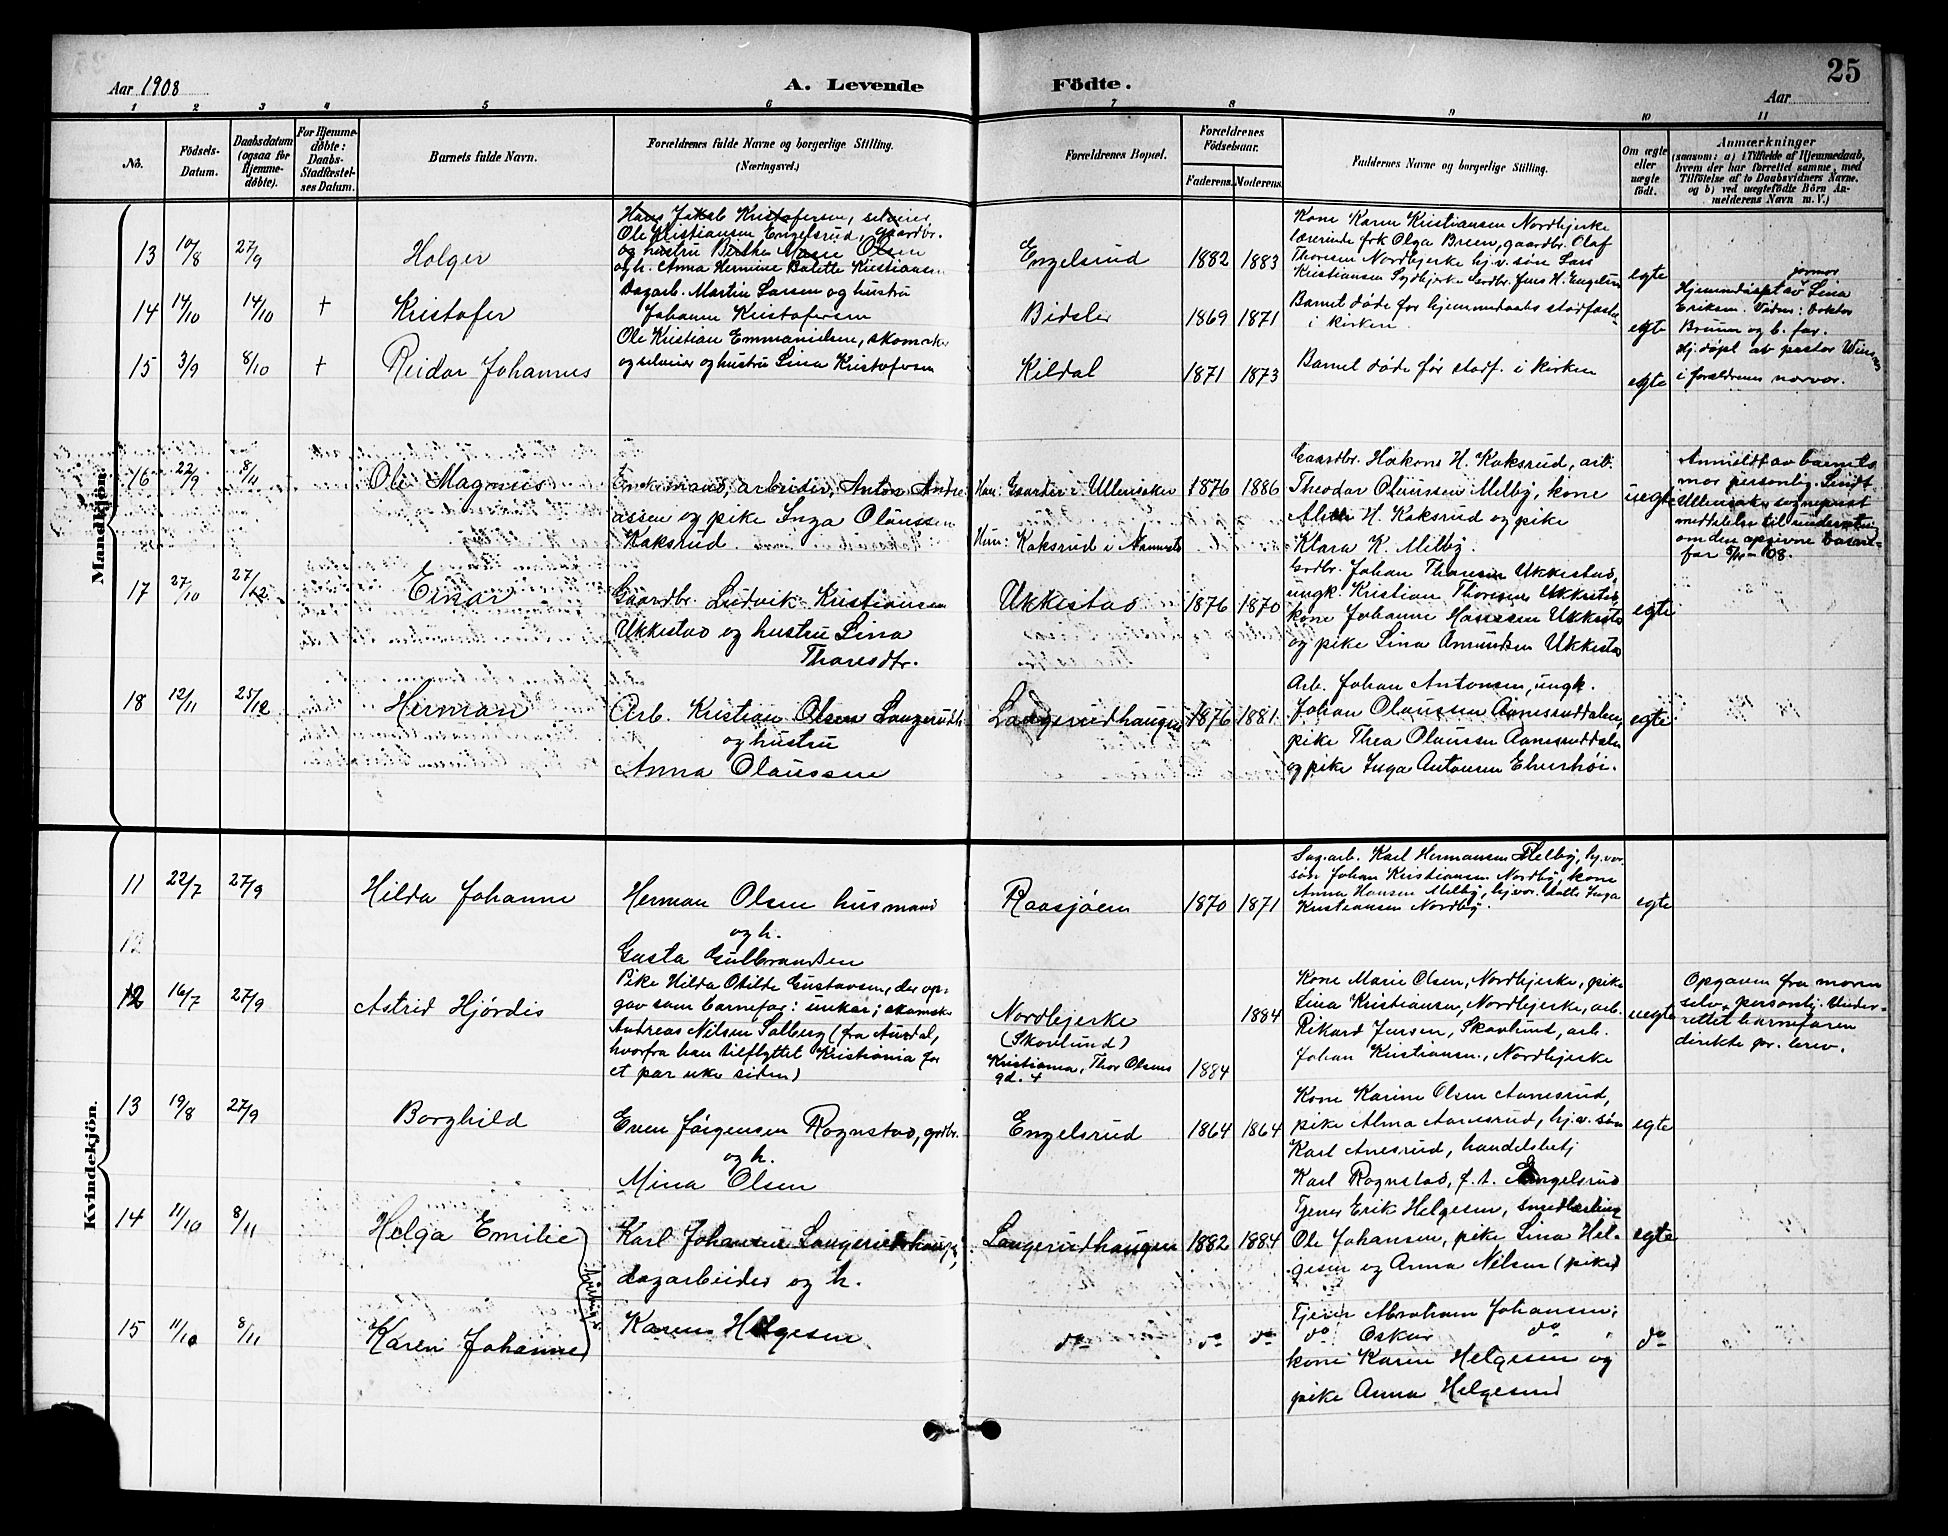 25
Aar 1908
A. Levende
Födte.
Aar
1 2 3 4 5 6 7 8 9 10 11
No.
Födsels-
Datum.
Daabsdatum
(ogsaa for
Hjemme-
døbte).
For Hjemme-
døbte:
Daabs-
Stadfæstel-
ses Datum.
Barnets fulde Navn.
Forældrenes fulde Navne og borgerlige Stilling.
(Næringsvei.)
Forældrenes Bopæl.
Forældrenes
Födselsaar.
Faderens. Moderens.
Faddernes Navne og borgerlige Stilling.
Om ægte
eller
uægte
født.
Anmærkninger
(saasom: a) i Tilfælde af Hjemmedaab,
hvem der har forrettet samme, med
Tilföielse af to Daabsvidners Navne.
og b) ved uægtefødte Börn An-
melderens Navn m. V.)
Mandkjön.
13 10/8 27/9 Holger
Hans Jakob Kristofersen, selveier,
Ole Kristiansen Engelsrud, gaardbr.
og hustru Berthe Marie Olsen
og h. Anna Hermine Bolette Kristiansen
Engelsrud 1882 1883
Kone Karen Kristiansen Nordbjerke
lærerinde frk Olga Breen, gaardbr. Olaf
Thoresen Nordbjerke hj.v. søn Lars
Kristiansen Sydbjerke Grdbr. Jens H. Engelsrud
egte
14 14/10 14/10 + Kristofer
Dagarb. Martin Larsen og hustru
Johanne Kristofersen
Bidsler 1869 1871
Barnet døde før hjemmedaabs stadfæstelse
i kirken.
egte
farmor
Hjemmedøpt av Lina
Eriksen. Vidner: Doktor
Bruun og b. far.
15 3/9 8/10 + Reidar Johannes
Ole Kristian Emmanuelsen, skomaker
og selveier og hustru Lina Kristofersen
Kildal 1871 1873
Barnet døde før stadf. i kirken
egte
Hj. døpt av pastor
i forældrenes nærvær.
16 22/9 8/11 Ole Magnus
Enkemand, arbeider, Anton Andre-
assen og pike Inga Olaussen
Kaksrud.
Han: Gaarder i Ullensaker
Hun: Kaksrud i Nannestad
1876 1886
Gaardbr. Hakon H. Kaksrud, arb.
Theodor Olaussen Melby, kone
H. Kaksrud og pike
Klara K. Melby.
uegte
Anmeldt av barnets
mor personlig. Sendt
Ullensaker sogneprest
meddelelse til underretning
om den opgivne barne-
far 5/11-08.
17 27/10 27/12 Einar
Gaardbr. Ludvik Kristiansen
Ukkestad og hustru Lina
Thoresdtr.
Ukkestad 1876 1870
Grdbr. Johan Thoresen Ukkestad,
ungk. Kristian Thoresen Ukkestad
kone Johanne Ukkestad
og pike Lina Amundsen Ukkestad
egte
18 12/11 25/12 Herman
Arb. Kristian Olsen Langerudh.
og hustru
Anna Olaussen
Langerudhaugen 1876 1881
Arb. Johan Antonsen, ungk.
Johan Olaussen Aanesruddalen,
pike Thea Olaussen Aanesruddalen
og pike Inga Antonsen
egte
Kvindekjön.
11 22/7 27/9 Hilda Johanne
Herman Olsen husmand
og h.
Gusta Gulbrandsen
Raasjøen 1870 1871
Sag.arb. Karl Hermansen Melby, hj.vær.
søn Johan Kristiansen Nordby, kone
Anna Hansen Melby, hj.vær. datte Inga
Kristiansen Nordby.
egte
12
12 16/7 27/9 Astrid Hjørdis
Pike Hilda Otilde Gustavsen, der op-
gav som barnefar: unkar; skomak.
Andreas Nilsen Solberg (fra Aurdal,
hvorfra han tilflyttet Kristiania for
et par uker siden)
Nordbjerke
(Skovlund)
Kristiania, Thor Olsens
gd. 4
1884 1884
Kone Marie Olsen, Nordbjerke, pike
Lina Kristiansen, Nordbjerke, arb.
Rikard Jensen, Skovlund, arb.
Johan Kristiansen, Nordbjerke
uegte
Opgaven fra moren
selv, personlig. Under-
rettet barnefaren
direkte pr. brev.
13 19/8 27/9 Borghild
Even Jørgensen Rognstad, grdbr.
og h.
Mina Olsen
Engelsrud 1864 1864
Kone Karine Olsen Aanesrud,
pike Alma Aanesrud, hj.v. søn
Karl Anesrud, handelsbetj
Karl Rognstad, f. t. Engelsrud
egte
14 11/10 8/11 Helga Emilie
Karl Johansen Langerudshaugen,
dagarbeider og h.
Langerudhaugen 1882 1884
Tjener Erik Helgesen, smedlærling
Ole Johansen, pike Lina Hel-
gesen og Anna Nilsen (pike)
egte
tvillinger
15 11/10 8/11 Karen Johanne
Karen Helgesen
do do do
Tjener Abraham Johansen,
do Oskar do
kone Karen Helgesen og
pike Anna Helgesen
do